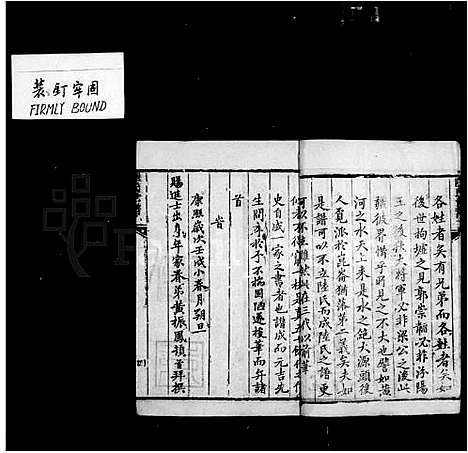 裝釘牢固
FIRMLY BOUND
各姓者矣有兄弟而各姓者矣如
後世拘墟之見郭崇韜必非汾陽
王之後
大將軍必非梁公之後此
疆彼界惜乎所見之不大也譬如黃
河之水天上來是水之絕大源頭後
人覓派於崑崙猶落第二義矣夫如
是譜可以不立陸氏而成陸氏之譜更
史自成一家之書者也譜成而元吉先
生問序於予不揣固陋遂援筆而年諸
首
皆
康熙歲次壬戌小春月朔旦
賜進士出身年家眷弟黃振鳳頓首拜撰